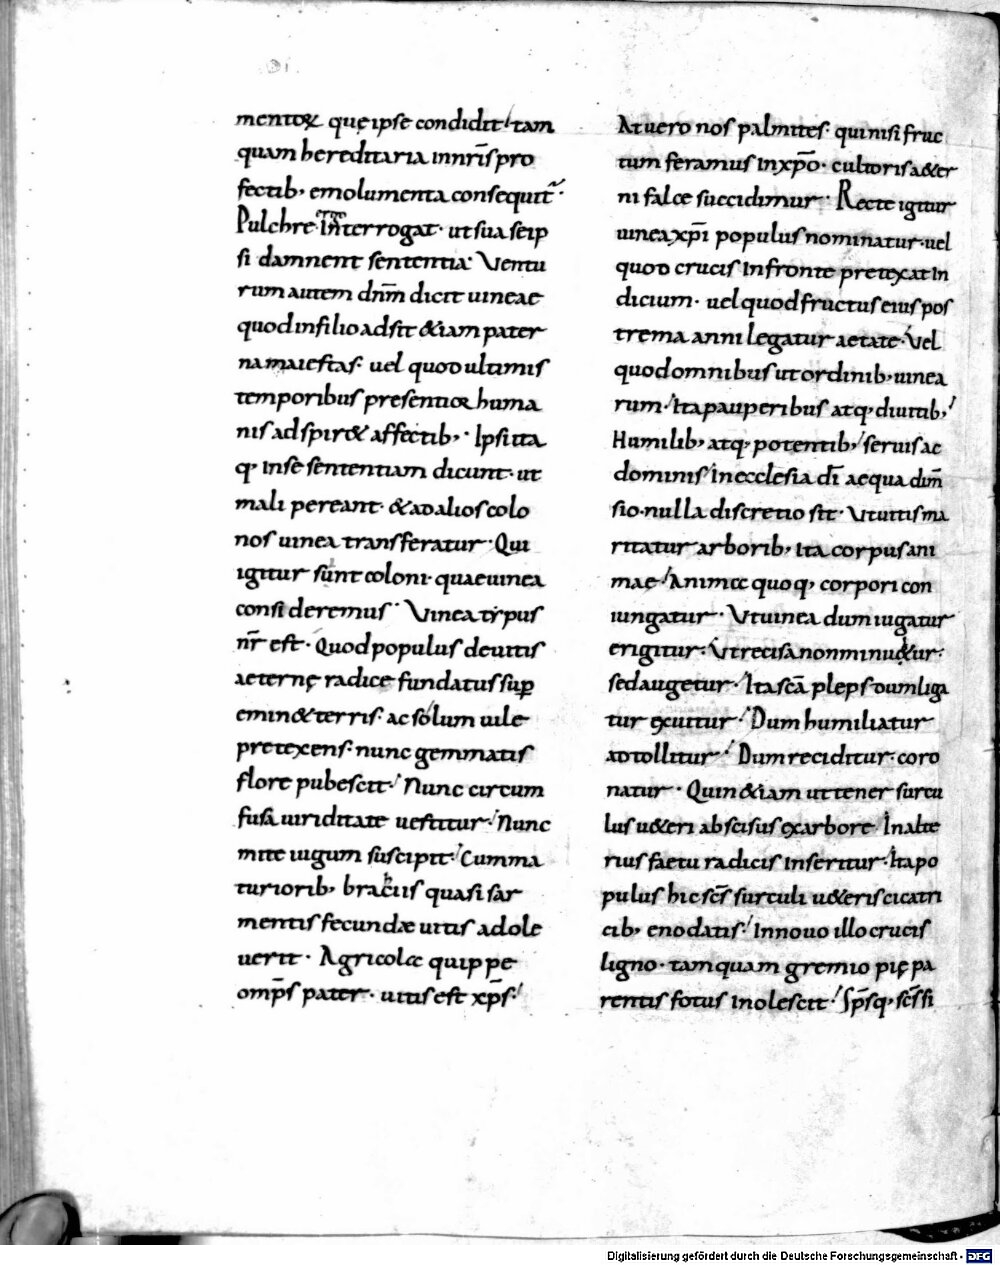 mentoꝝ quę ipse condidit tam
quam hereditaria in nr̄is pro
fectib; emolumenta consequit᷑.
Pulchre interrogat· ut sua se ip
si damnent sententia· Ventu
rum autem dn̄m dicit uineae
quod in filio adsit &iam pater
na maiestas· uel quod ultimis
temporibus presentior huma
nis adspir& affectib;· Ipsi ita
q; in se sententiam dicunt· ut
mali pereant· & ad alios colo
nos uinea transferatur· Qui
igitur sunt coloni· quae uinea
consideremus· Vinea typus
nr̄ est· Quod populus de uitis
aeternę radice fundatus suꝑ
emin& terris· ac solum uile
pretexens· nunc gemmatis
flore pubescit· Nunc circum
fusa uiriditate uestitur· Nunc
mite iugum suscipit· Cum ma
turiorib; brachiis quasi sar
mentis fecundæ uitis adole
uerit· Agricolæ quippe
omps̄ pater· uitis est xp̄s·
At uero nos palmites· qui nisi fruc
tum feramus in xp̄o· cultoris a&er
ni falce succidimur· Recte igitur
uinea xp̄i populus nominatur· uel
quod crucis in fronte pretexat in
dicium· uel quod fructus eius pos
trema anni legatur aetate· Vel
quod omnibus ut ordinib; uinea
rum· Ita pauperibus atq; diuitib;
Humilib; atq; potentib; seruis ac
dominis in ecclesia dī aequa dim̄
sio· nulla discretio sit· Vt uitis ma
ritatur arborib; ita corpus ani
mae· Animæ quoq; corpori con
iungatur· Vt uinea dum iugatur
erigitur· Vt recisa non minu&ur·
sed augetur· Ita sc̄a pleps dum liga
tur exuitur· Dum humiliatur
adtollitur· Dum reciditur· coro
natur· Quin &iam ut tener surcu
lus u&eri abscisus ex arbore In alte
rius faetu radicis inseritur· Ita po
pulus hic sc̄s surculi u&eris cicatri
cib; enodatis· In nouo illo crucis
ligno· tamquam gremio pię pa
rentis fotus inolescit· Sp̄s q; sc̄s si
Digitalisierung gefördert durch die Deutsche Forschungsgemeinschaft - DFG